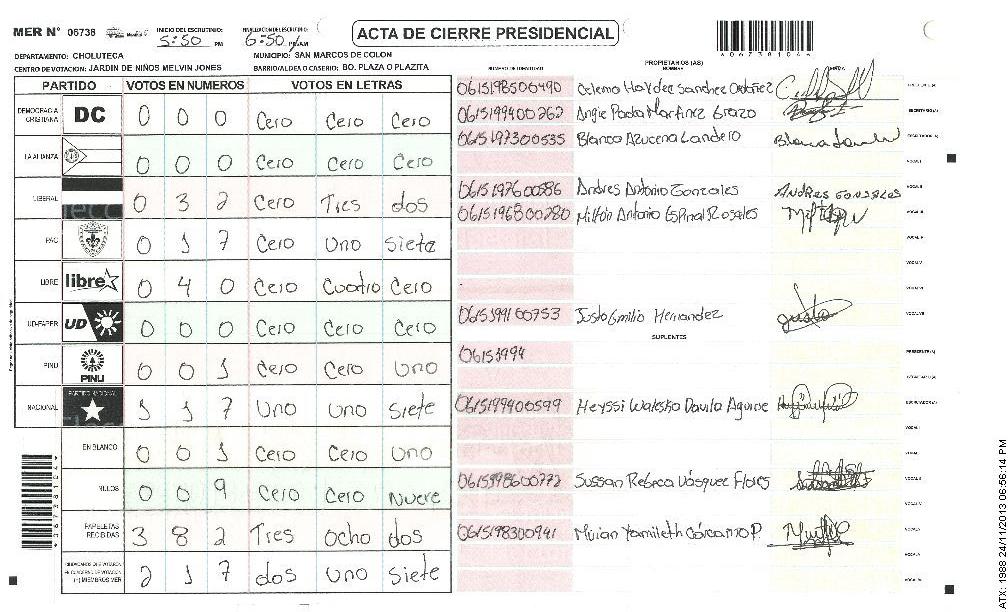 MER N° 06736 INICIO DEL ESCRUTINIO: 5:50 PM FINALIZACION DEL ESCRUTINIO: 6:50 PM/AM ACTA DE CIERRE PRESIDENCIAL
DEPARTAMENTO: CHOLUTECA MUNICIPIO: SAN MARCOS DE COLON
CENTRO DE VOTACION: JARDIN DE NIÑOS MELVIN JONES BARRIO/ALDEA O CASERIO: BO. PLAZA O PLAZITA
PARTIDO VOTOS EN NUMEROS VOTOS EN LETRAS
DEMOCRACIA CRISTIANA DC 0 0 0 Cero Cero Cero
LA ALIANZA 0 0 0 Cero Cero Cero
LIBERAL 0 3 2 Cero Tres dos
PAC 0 1 7 Cero Uno Siete
LIBRE libre 0 4 0 Cero Cuatro Cero
UD-FAPER UD 0 0 0 Cero Cero Cero
PINU PINU 0 0 1 Cero Cero Uno
NACIONAL 1 1 7 Uno Uno Siete
EN BLANCO 0 0 1 Cero Cero Uno
NULOS 0 0 9 Cero Cero Nueve
PAPELETAS RECIBIDAS 3 8 2 Tres Ocho dos
2 1 7 dos Uno Siete
NUMERO DE IDENTIDAD PROPIETARIOS (AS) NOMBRE FIRMA
0615198500490 Celema Haydee Sanchez Ordoñez PRESIDENTE (A)
0615199400262 Angie Paola Martinez Erazo SECRETARIO (A)
0615197300535 Blanca Azucena Landero ESCRUTADOR (A)
VOCAL I
0615197600586 Andres Antonio Gonzales ANDRES GONZALES VOCAL II
0615196800280 Milton Antonio Espinal Rosales VOCAL III
VOCAL IV
VOCAL V
VOCAL VI
0615199100753 Justo Emilio Hernandez justo VOCAL VII
SUPLENTES
06151994 PRESIDENTE (A)
SECRETARIO (A)
0615199400599 Heyssi Waleska Davila Aguirre ESCRUTADOR (A)
VOCAL I
0615198600772 Sussan Rebeca Vásquez Flores
0615198300941 Mirian Yamileth Cárcamo P.
ATX: 1988 24/11/2013 06:56:14 PM